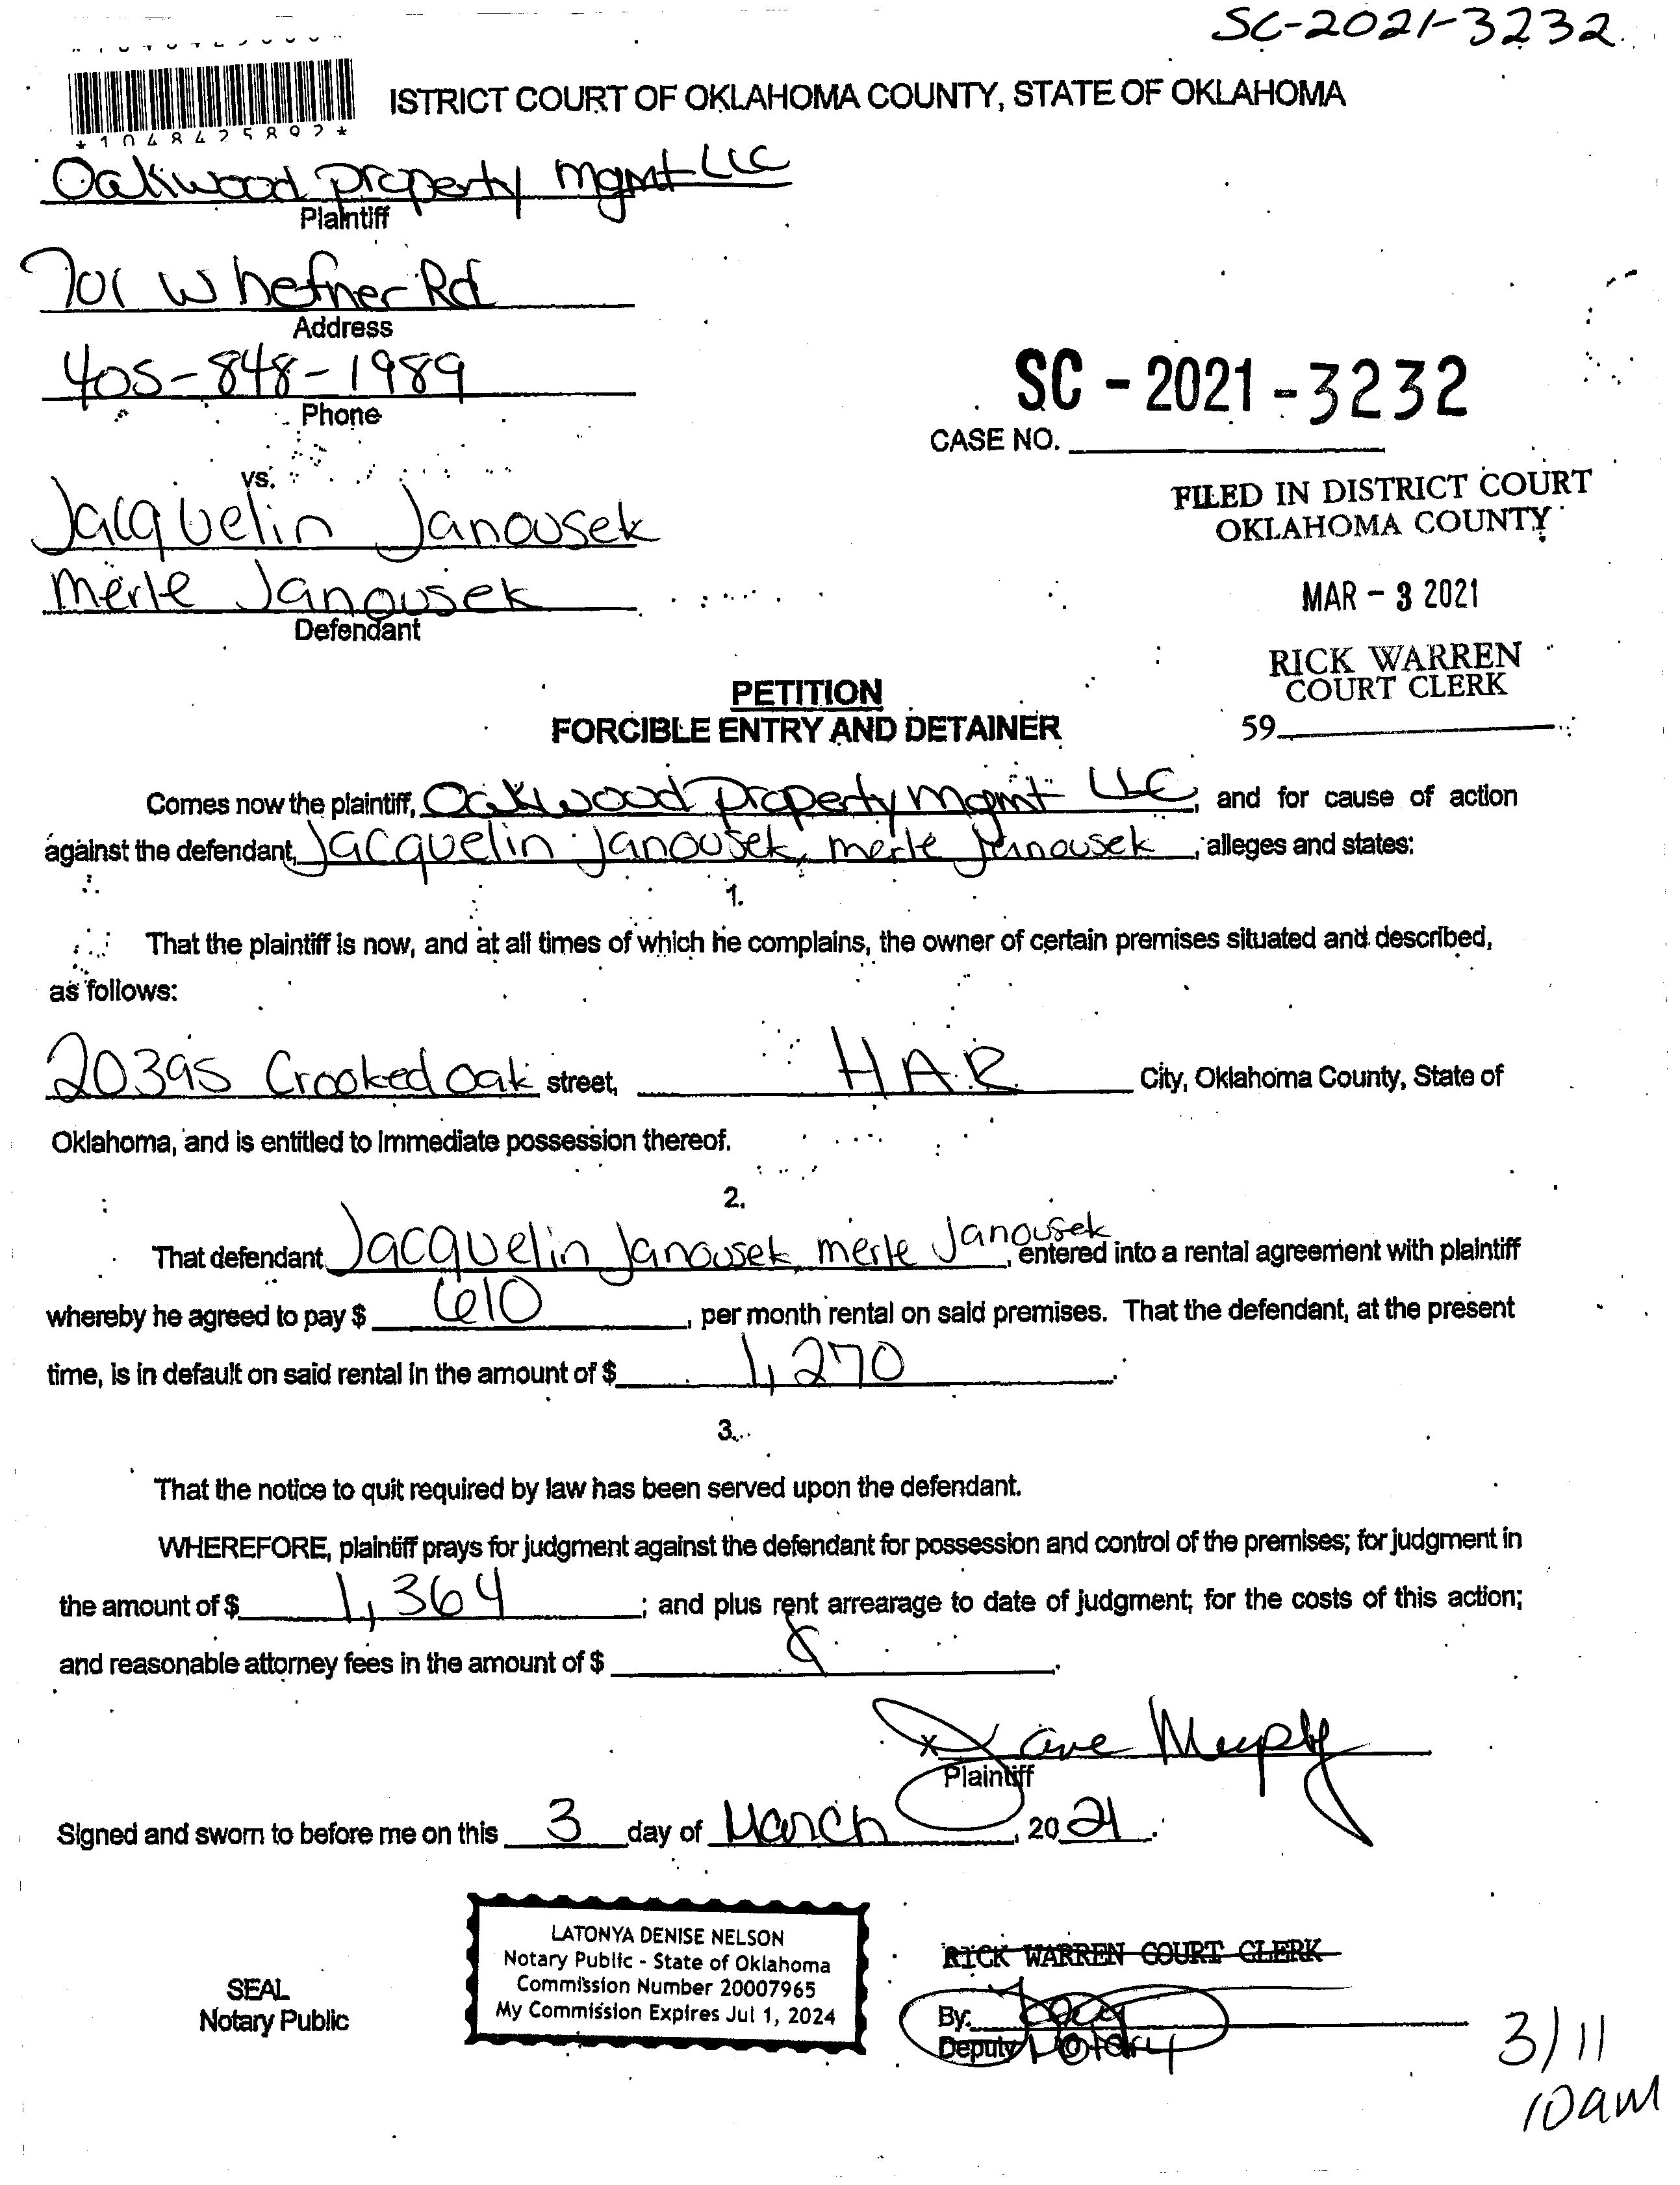 SC-2021-3232
ISTRICT COURT OF OKLAHOMA COUNTY, STATE OF OKLAHOMA
*1048425892*
Oakwood property mgmt LLC
Plaintiff
701 W hefner Rd
Address
405-848-1989
Phone
SC - 2021 - 3232
CASE NO.
vs.
FILED IN DISTRICT COURT
OKLAHOMA COUNTY
Jacquelin Janousek
merle Janousek
Defendant
MAR - 3 2021
RICK WARREN
COURT CLERK
59
PETITION
FORCIBLE ENTRY AND DETAINER
Comes now the plaintiff, Oakwood property mgmt LLC, and for cause of action
against the defendant, Jacquelin Janousek, merle Janousek, alleges and states:
1.
That the plaintiff is now, and at all times of which he complains, the owner of certain premises situated and described,
as follows:
20395 Crooked Oak street, HAR City, Oklahoma County, State of
Oklahoma, and is entitled to immediate possession thereof.
2.
That defendant Jacquelin Janousek, merle Janousek, entered into a rental agreement with plaintiff
whereby he agreed to pay $ 610, per month rental on said premises. That the defendant, at the present
time, is in default on said rental in the amount of $ 1,270.
3.
That the notice to quit required by law has been served upon the defendant.
WHEREFORE, plaintiff prays for judgment against the defendant for possession and control of the premises; for judgment in
the amount of $ 1,364; and plus rent arrearage to date of judgment; for the costs of this action;
and reasonable attorney fees in the amount of $
x Jane Murphy
Plaintiff
Signed and sworn to before me on this 3 day of March, 2021.
LATONYA DENISE NELSON
Notary Public - State of Oklahoma
Commission Number 20007965
My Commission Expires Jul 1, 2024
SEAL
Notary Public
RICK WARREN COURT CLERK
By:
Deputy Notary
3/11
10am